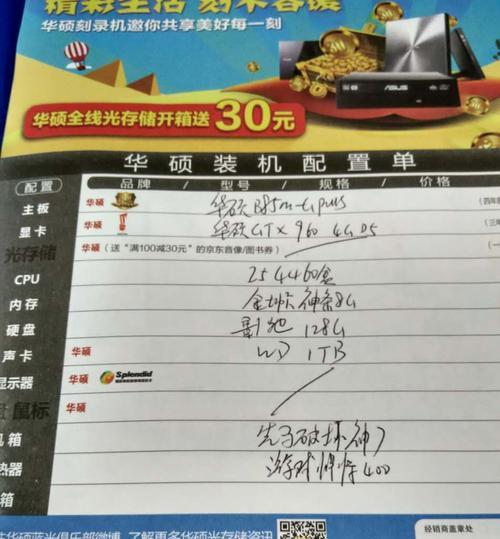 精彩生活 刻不容缓
华硕刻录机邀你共享美好每一刻
ASUS
华硕全线光存储开箱送30元
华硕装机配置单
配置 品牌 / 型号 / 规格 / 价格
主板 华硕 华硕B85m-G plus (四年
显卡 华硕 华硕GTX 960 4G D5 (三年
光存储 华硕 (送“满100减30元”的京东音像/图书券) (一
CPU 4460盒
内存 8G
硬盘 128G
声卡 华硕 WD 1TB
显示器 华硕 Splendid
鼠标 华硕
机箱 先马破坏神7
热器 游戏 400
箱
华硕蓝光俱乐部微博 了解更多华硕光存储资讯
经销商盖章处